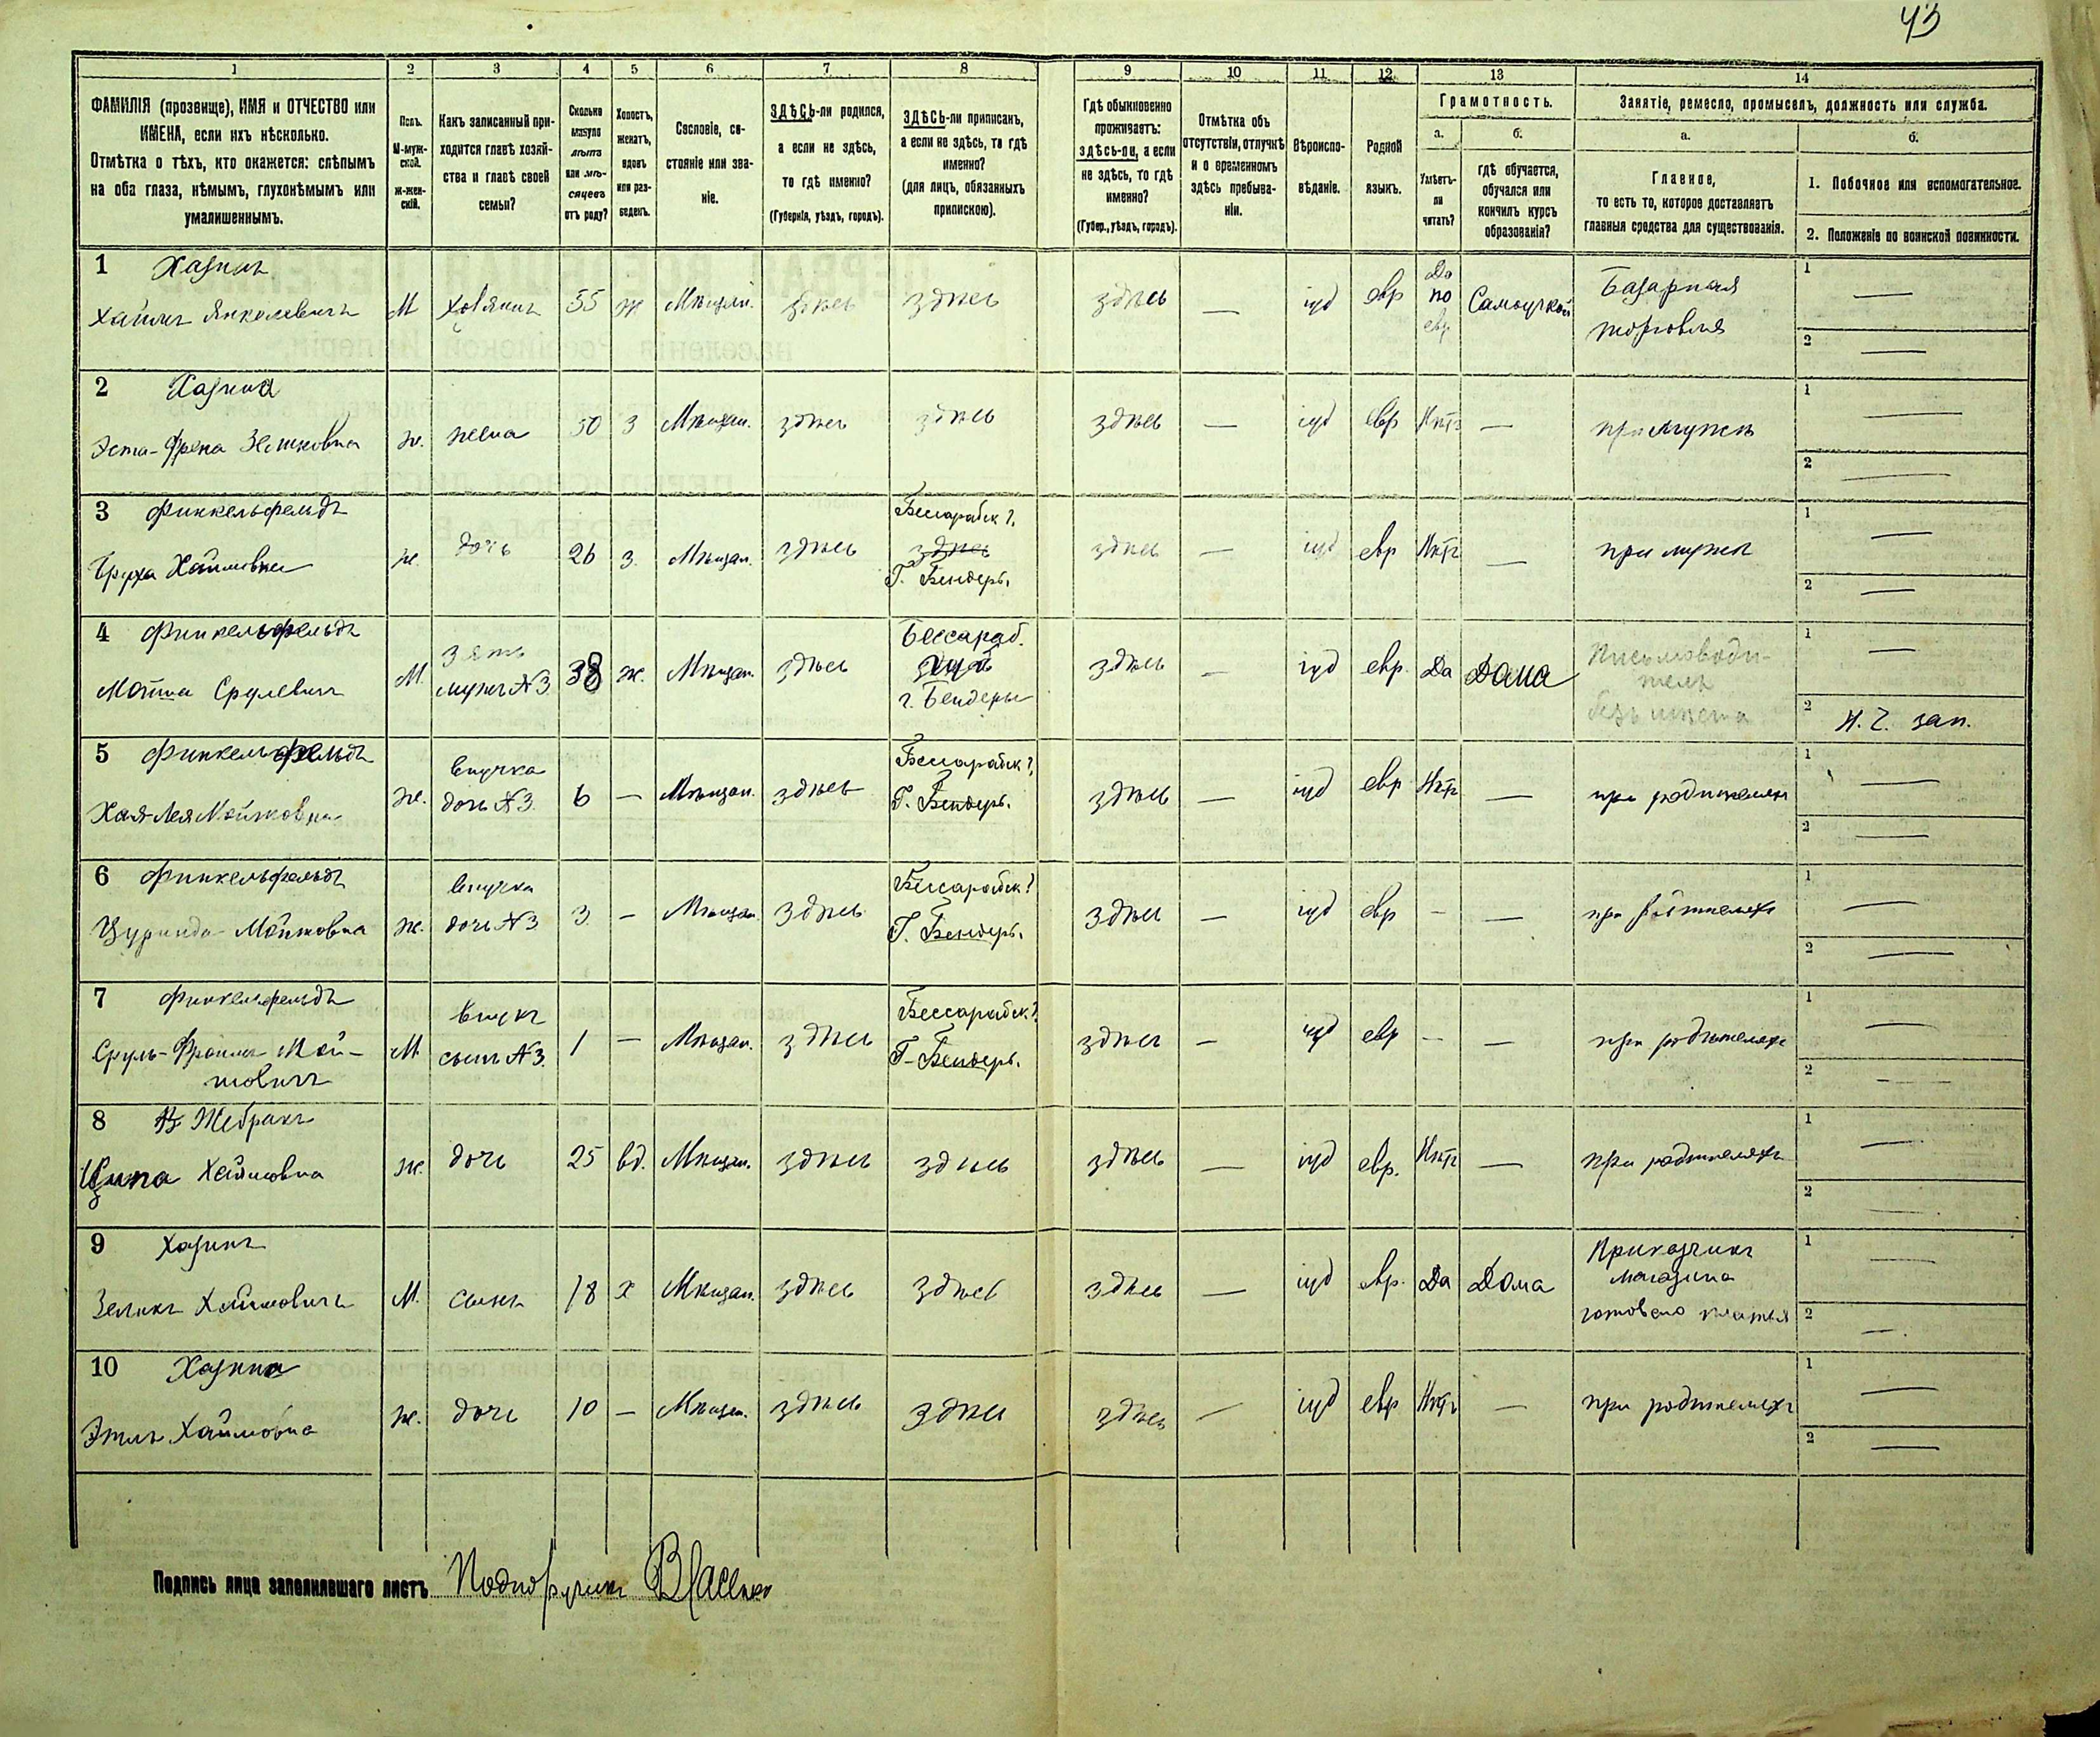 43
1 2 3 4 5 6 7 8 9 10 11 12 13 14
ФАМИЛІЯ (прозвище), ИМЯ и ОТЧЕСТВО или
ИМЕНА, если ихъ нѣсколько.
Отмѣтка о тѣхъ, кто окажется: слѣпымъ
на оба глаза, нѣмымъ, глухонѣмымъ или
умалишеннымъ.
Полъ.
М-муж-
ской.
ж-жен-
скій.
Какъ записанный при-
ходится главѣ хозяй-
ства и главѣ своей
семьи?
Сколько
минуло
лѣтъ
или мѣ-
сяцевъ
отъ роду?
Холостъ,
женатъ,
вдовъ
или раз-
веденъ.
Сословіе, со-
стояніе или зва-
ніе.
ЗДѢСЬ-ли родился,
а если не здѣсь,
то гдѣ именно?
(Губернія, уѣздъ, городъ).
ЗДѢСЬ-ли приписанъ,
а если не здѣсь, то гдѣ
именно?
(для лицъ, обязанныхъ
припискою).
Гдѣ обыкновенно
проживаетъ:
здѣсь-ли, а если
не здѣсь, то гдѣ
именно?
(Губер., уѣздъ, городъ).
Отмѣтка объ
отсутствіи, отлучкѣ
и о временномъ
здѣсь пребыва-
ніи.
Вѣроиспо-
вѣданіе.
Родной
языкъ.
Грамотность.
а. б.
Умѣетъ-
ли
читать?
гдѣ обучается,
обучался или
кончилъ курсъ
образованія?
Занятіе, ремесло, промыселъ, должность или служба.
а. б.
Главное,
то есть то, которое доставляетъ
главныя средства для существованія.
1. Побочное или вспомогательное.
2. Положеніе по воинской повинности.
1 Хазинъ
Хаимъ Янкелевичъ М Хозяинъ 55 ж Мѣщан. здѣсь здѣсь здѣсь — іуд евр Да по евр. Самоучкой Базарная
торговля
1 —
2 —
2 Хазина
Эста-Френа ж. жена 50 з Мѣщан. здѣсь здѣсь здѣсь — іуд евр Нѣтъ — при мужѣ
1 —
2 —
3 Финкельфельдъ Бессарабск г.
Бруха Хаимовна ж. дочь 26 з. Мѣщан. здѣсь здѣсь здѣсь — іуд евр Нѣтъ — при мужѣ
Г. Бендеръ.
1 —
2 —
4 Финкельфельдъ зять Бессараб.
Мойша Срулевичъ М. мужъ №3 38 ж. Мѣщан. здѣсь здѣсь — іуд евр. Да Дома Письмоводи-
тель
г. Бендеры
безъ мѣста
1 —
2 Н. Ч. зап.
5 Финкельфельдъ внучка Бессарабск г.
Хая-Лея Мойшковна ж. дочь №3. 6 — Мѣщан. здѣсь Г. Бендеръ. здѣсь — іуд евр Нѣтъ — при родителяхъ
1 —
2 —
6 Финкельфельдъ внучка Бессарабск г
Мойшовна ж. дочь №3 3 — Мѣщан. здѣсь Г. Бендеръ. здѣсь — іуд евр — — при родителяхъ
1 —
2 —
7 Финкельфельдъ внукъ Бессарабск г.
Сруль-Фроимъ Мой-
шовичъ М. сынъ №3. 1 — Мѣщан. здѣсь Г. Бендеръ. здѣсь — іуд евр — — при родителяхъ
1 —
2 —
8 Жебракъ
Ципа Хаимовна ж. дочь 25 вд. Мѣщан. здѣсь здѣсь здѣсь — іуд евр. Нѣтъ — при родителяхъ
1 —
2 —
9 Хазинъ
Зеликъ Хаимовичъ М. сынъ 18 х Мѣщан. здѣсь здѣсь здѣсь — іуд евр. Да Дома Приказчикъ
магазина
готоваго платья
1 —
2 —
10 Хазина
Этля Хаимовна ж. дочь 10 — Мѣщан. здѣсь здѣсь здѣсь — іуд евр Нѣтъ — при родителяхъ
1 —
2 —
Подпись лица заполнившаго листъ Подпоручикъ